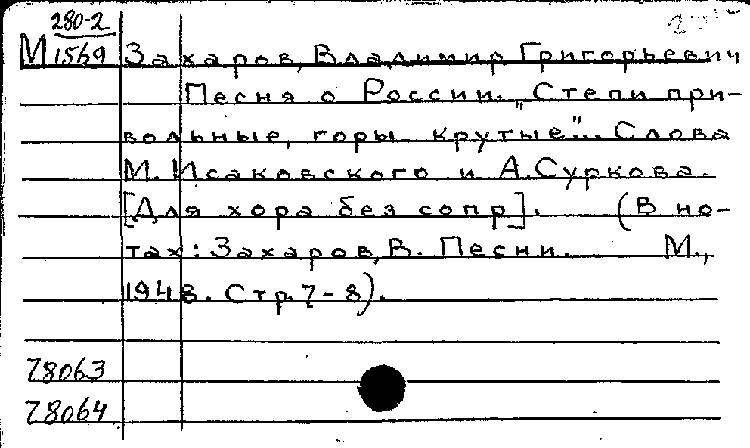 280-2
М1569 Захаров, Владимир Григорьевич
Песня о России. „Степи при-
вольные, горы крутые"... Слова
М. Исаковского и А. Суркова.
[Для хора без сопр]. (В но-
тах: Захаров, В. Песни. М.,
1948. Стр. 7-8).
78063
78064